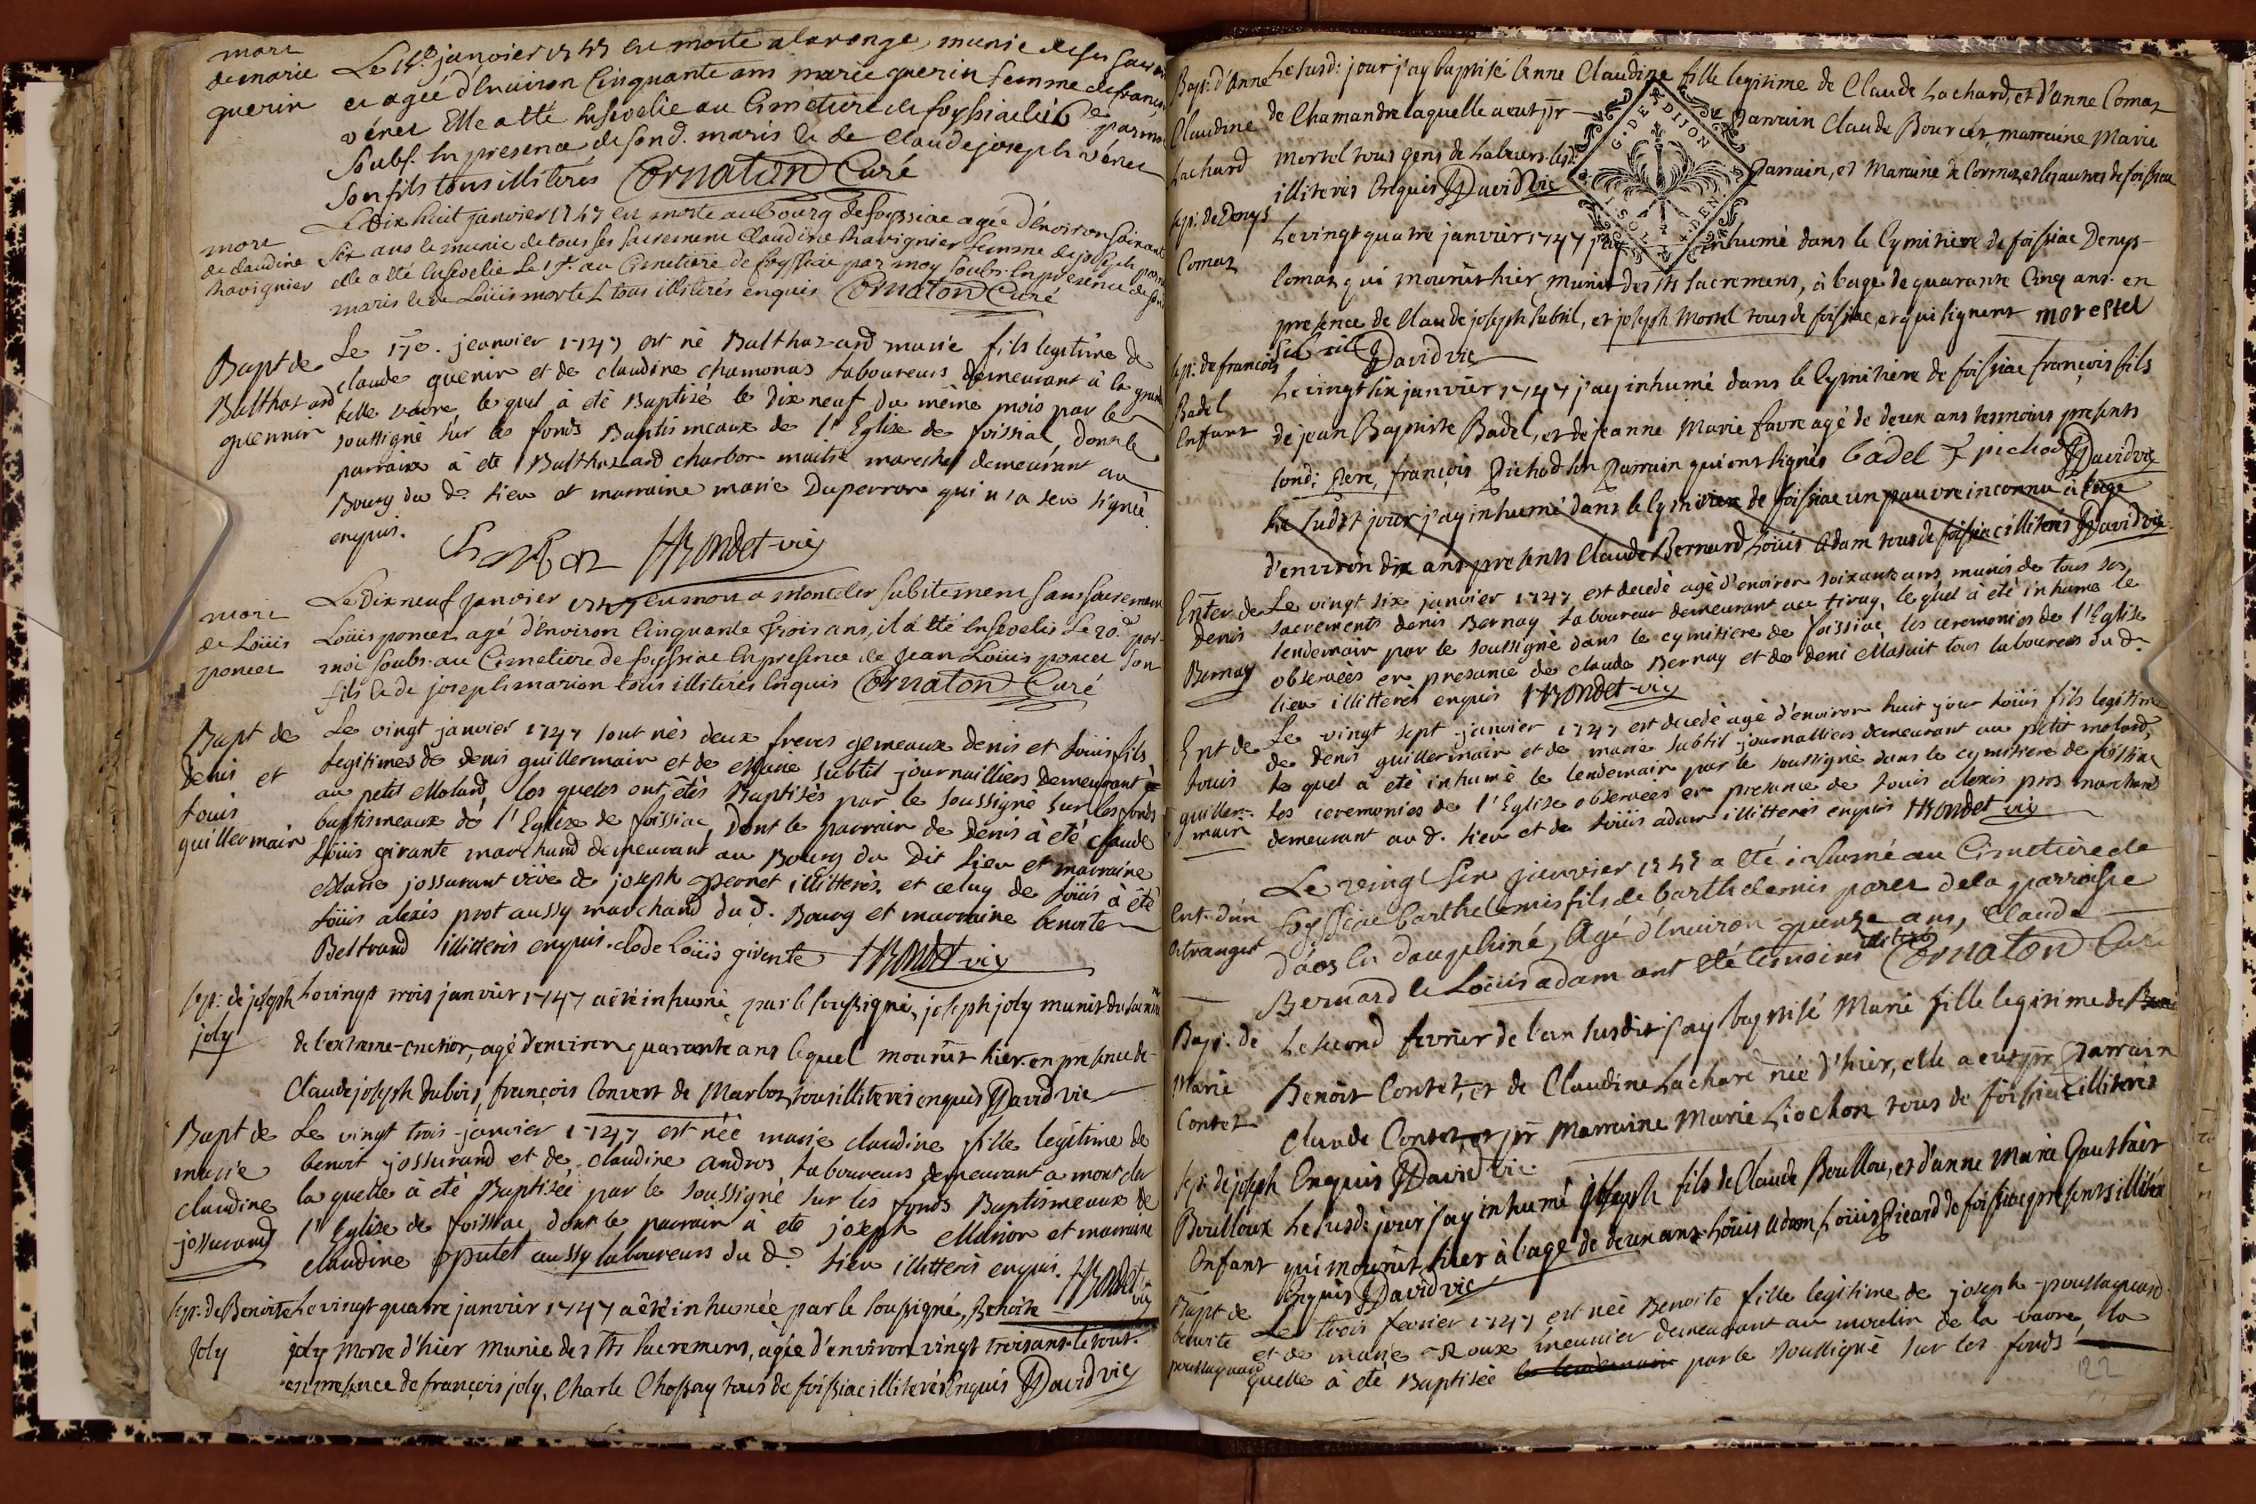 mort
de marie
guerin
Le 15e janvier 1747 est morte a la ronge, munie de ses
et agée d'Environ Cinquante ans marie guerin femme de françois
vénet Elle a été Ensevelie au Cimetiere de foyssiac le 16e par moy
soubs. En presence de sond. maris & de Claude joseph vénet
son fils tous illiterés Cornaton Curé
mort
de claudine
Ravignier
Le Dix huit janvier 1747 est morte au bourg de foyssiac agée d'énviron soixante
six ans & munie de tous ses sacrement Claudine Ravignier femme de joseph
elle a été Ensevelie Le 19e. au Cimetiere de foyssiac par moy soubs. En presence de son
maris & de Loüis mortel tous illiterés enquis Cornaton Curé
Bapt de
Balthazard
guennin
Le 17e. jeanvier 1747 est né Balthazard marie fils legitime de
claude guenin et de claudine chamonas laboureurs demeurant à la grande
vavre, le quel à eté Baptizé le Dix neuf du même mois par le
soussigné sur les fonds Baptismeaux de l'Eglize de foissiat, dont le
parrain à eté Balthazard charbon maitre marechal demeurant au
Bourg du d. lieu et marraine marie Duperron qui n'a seu signé
enquis.
Charbon HRondet-vic
mort
de Loüis
poncet
Le Dix neuf janvier 1747 est mort a Monteler subitement sans sacrement
Loüis poncet agé d'Environ Cinquante trois ans, il a été Ensevelis Le 20.e par
moi soubs. au Cimetiere de foyssiac En presence de jean Loüis poncet son
fils & de joseph marion tous illiterés Enquis Cornaton Curé
Bapt de
denis et
Louis
guillermain
Le vingt janvier 1747 sont nés deux freres gemeaux denis et Loüis fils
legitimes de denis guillermain et de Marie subtil journailliers demeurant
au petit Molard, les quels ont étés Baptisés par le soussigné sur les fonds
baptismeaux de l'Eglize de foissiac, Dont le parrain de Denis à eté claude
Loüis givante marchand demeurant au Bourg du Dit Lieu et marraine
Marie jossurant veve de joseph Pernet illitteres, et celuy de Loüis à eté
Loüis alexis prot aussy marchand du d. Bourg et marraine benoite
Beltrand illitteris enquis. clode Loüis givente HRondet vic
sep: de joseph
joly
Le vingt trois janvier 1747 a été inhumé, par le soussigné, joseph joly munit du sacrem.
de l'extreme-onction, agé d'environ quarante ans lequel mourût hier en presence de
Claude joseph Dubois, françois Convert de Marboz, tous illiterés enquis JDavid vic
Bapt de
marie
claudine
jossurand
Le vingt trois janvier 1747 est née marie claudine fille legitime de
benoit jossurand et de claudine andros laboureurs demeurant a mont cler
la quelle à eté Baptisée par le soussigné sur les fonds Baptismeaux de
l'Eglize de foissiac, dont le parrain à eté joseph Marion et marraine
claudine putet aussy laboureurs du d. lieu illitteris enquis. HRondet vic
sep: de Benoite
joly
Le vingt quatre janvier 1747 a été inhumée par le soussigné, Benoite
joly morte d'hier munie des sts sacremens, agée d'environ vingt trois ans le tout
en presence de françois joly, Charle Chossay tous de foissiac illiterés Enquis JDavid vic
Bapt: d'Anne
Claudine
Lachard
Le susd: jour j'ay baptisé Anne Claudine fille legitime de Claude Lachard, et d'anne Comaz
de Chamandre laquelle a eut pr Parrain Claude Bourcet, marraine Marie
Mortel tous gens de labeurs Parrain, et Maraine de Cormoz, et les autres de foissiac
illiterés Enquis JDavid vic
G. DE DIJON
2 SOLS
sep: de Denys
Comaz
Le vingt quatre janvier 1747 j'ay inhumé dans le Cymitiere de foissiac Denys
Comaz qui mourût hier, munit des sts sacremens, à l'age de quarante Cinq ans. en
presence de Claude joseph subtil, et joseph Mortel tous de foissiac, et qui signent morestel
JDavid vic
sep: de francois
Badel
Enfant
Le vingt six janvier 1747 j'ay inhumé dans le Cymitiere de foissiac françois fils
de jean Baptiste Badel, et de jeanne Marie favre agé de deux ans tesmoins presents
sond: Pere, françois Pichod son Parrain qui ont signés badel f pichod JDavid vic
Le susdit jour j'ay inhumé dans le Cymitiere de foissiac un pauvre inconnu à l'age
d'environ dix ans presents Claude Bernard, Loüis Adam tous de foissiac illiterés JDavid vic
Enter de
denis
Bernay
Le vingt six janvier 1747 est decedé agé d'environ soixante ans, munis de tous ses
sacrements denis Bernay Laboureur demeurant au tiray, le quel a été inhumé le
lendemain par le soussigné dans le cymitiere de foissiac, les ceremonies de l'Eglise
observées en presance de claude Bernay et de deni Masuit tous laboureurs du d.
lieu illitterés enquis HRondet-vic
Ent de
Louis
guiller-
main
Le vingt sept janvier 1747 est decedé agé d'environ huit jour Loüis fils legitime
de denis guillermain et de marie subtil journalliers demeurant au petit molard,
le quel à eté inhumé le lendemain par le soussigné dans le cymitiere de foissiac
les ceremonies de l'Eglise observées en presance de Louis alexis prot marchand
demeurant au d. lieu et de Loüis adam illitteres enquis HRondet vic
Ent. d'un
étranger
Le vingt six janvier 1747 a été inhumé au Cimetiere de
foyssiac barthelemis fils de barthelemis paret de la parroisse
en dauphiné, agé d'Environ quenze ans, Claude
Bernard & Loüis adam ont été temoins illiterés Cornaton Curé
Bapt: de
Marie
Contet
Le second fevrier de l'an susdit j'ay baptisé Marie fille legitime de
Benoît Contet, et de Claudine Lachard née d'hier, elle a eut pr Parrain
Claude Contet, et pr Marraine Marie Liochon tous de foissiac illiterés
Enquis JDavid vic
sep: de joseph
Boulloux
Enfant
Le susd: jour j'ay inhumé joseph fils de Claude Boullou, et d'anne Marie Gauthier
qui mourût hier à l'age de deux ans Loüis Adam, Loüis Picard de foissiac presents illiterés
Enquis JDavid vic
Bapt de
benoite
poussaguard
Le trois fevrier 1747 est née Benoite fille legitime de joseph poussaguard
et de marie Roux meunier demeurant au moulin de la vavre, la
quelle à eté Baptisée le lendemain par le soussigné sur les fonds
22